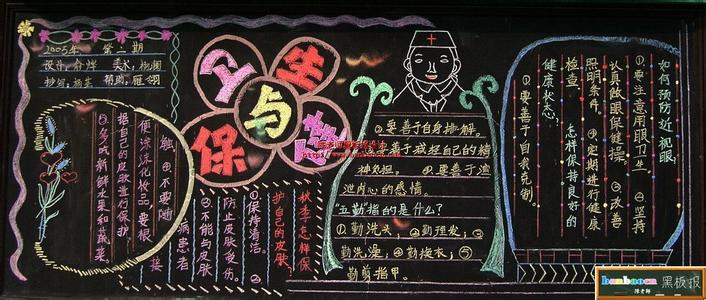 2005年 第二期
卫生
与
保健
如何预防近视眼:
①要注意用眼卫生 ②坚持
认真做眼保健操 ③改善
照明条件。④定期进行健康
检查。 怎样保持良好的
健康状态:
①要善于自我克制。
②要善于自身排解。
③要善于减轻自己的精
神负担。④要善于溢
泄内心的感情。
"五勤"指的是什么?
①勤洗头;②勤理发;③
勤洗澡;④勤换衣;⑤
勤剪指甲。
秋季怎样保
护自己的皮肤?
①保持清洁。②
防止皮肤受伤。
③不能与皮肤
病患者
接
触。④不要随
便涂化妆品,要根
据自己的皮肤进行保护
⑤多吃新鲜水果和蔬菜
黑板报